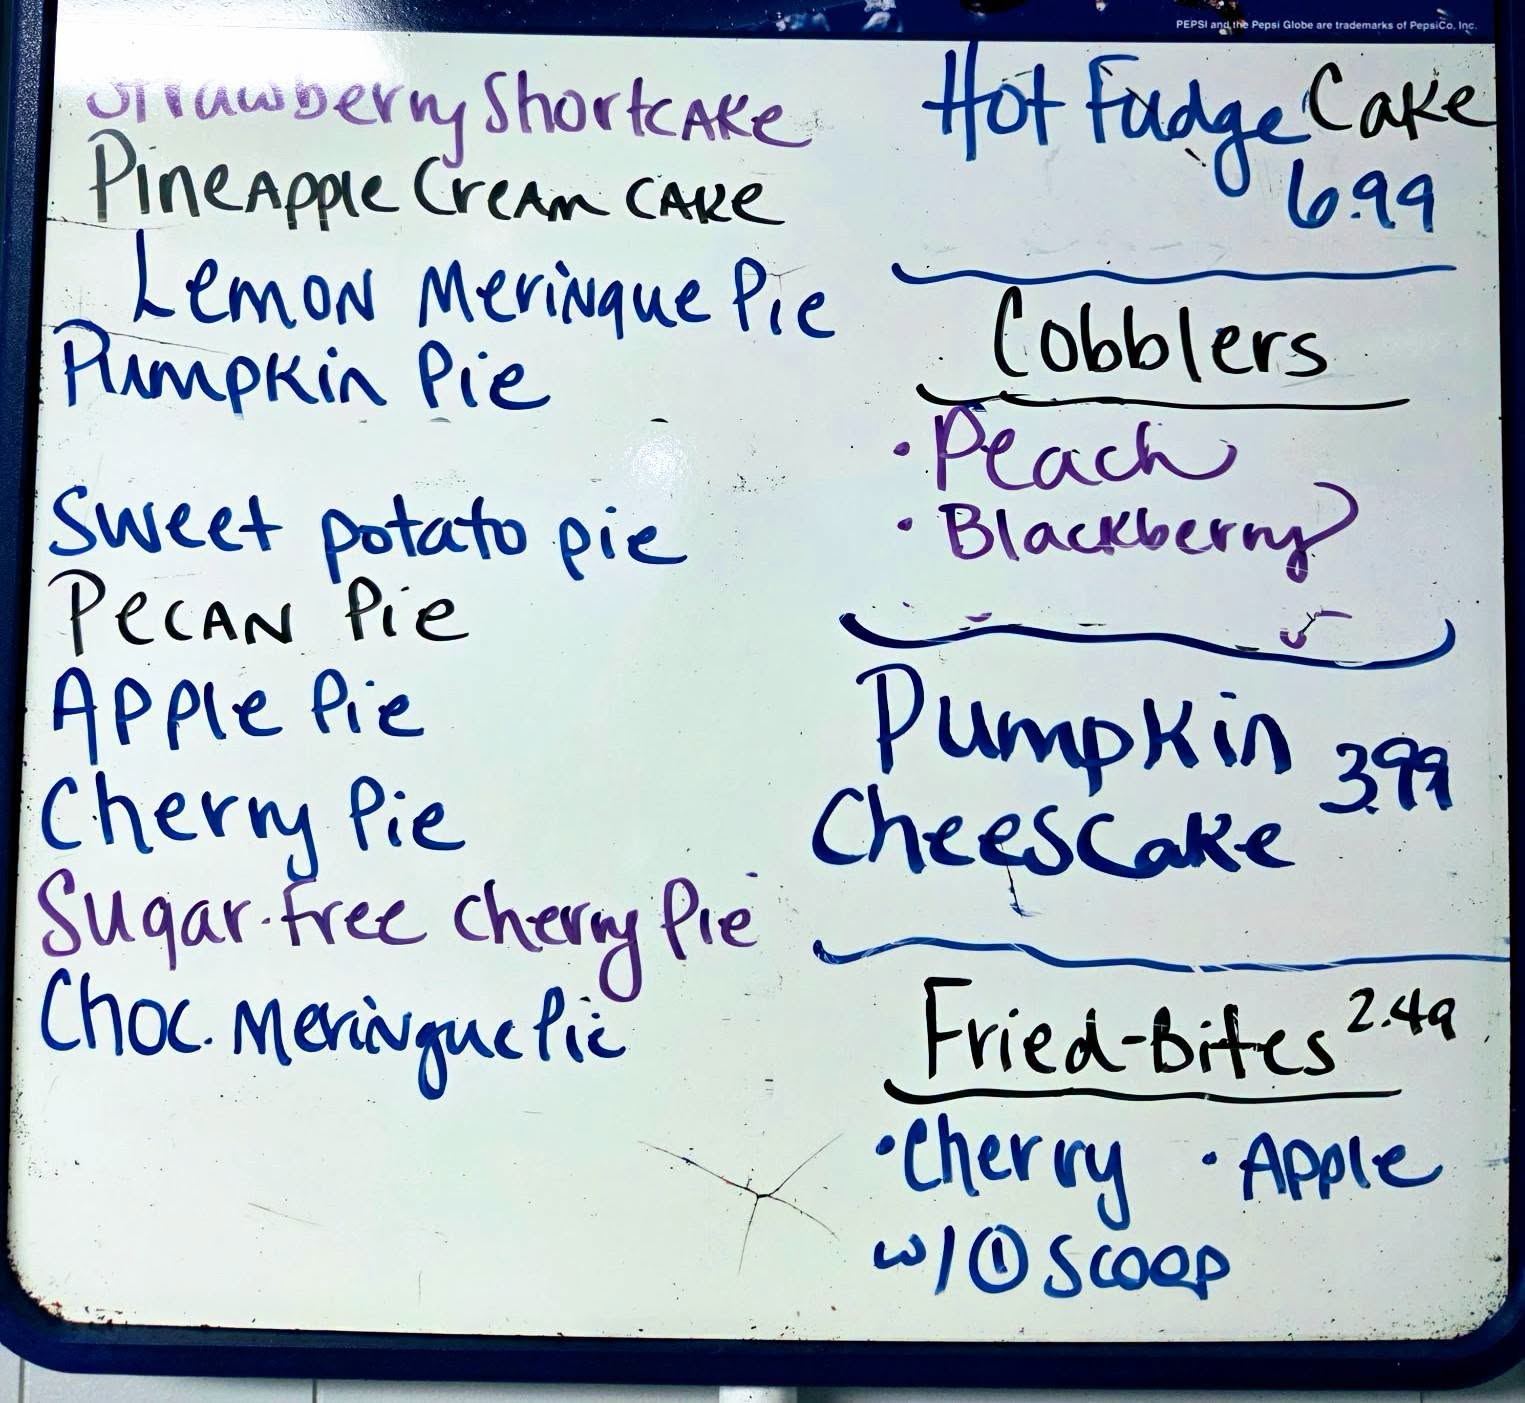 PEPSI and the Pepsi Globe are trademarks of PepsiCo, Inc.
Strawberry Shortcake
Pineapple Cream Cake
Lemon Meringue Pie
Pumpkin Pie
Sweet potato pie
Pecan Pie
Apple Pie
Cherry Pie
Sugar-free Cherry Pie
Choc. Meringue Pie
Hot Fudge Cake
6.99
Cobblers
• Peach
• Blackberry
Pumpkin
Cheescake 3.99
Fried-Bites 2.49
• Cherry • Apple
w/ ① scoop